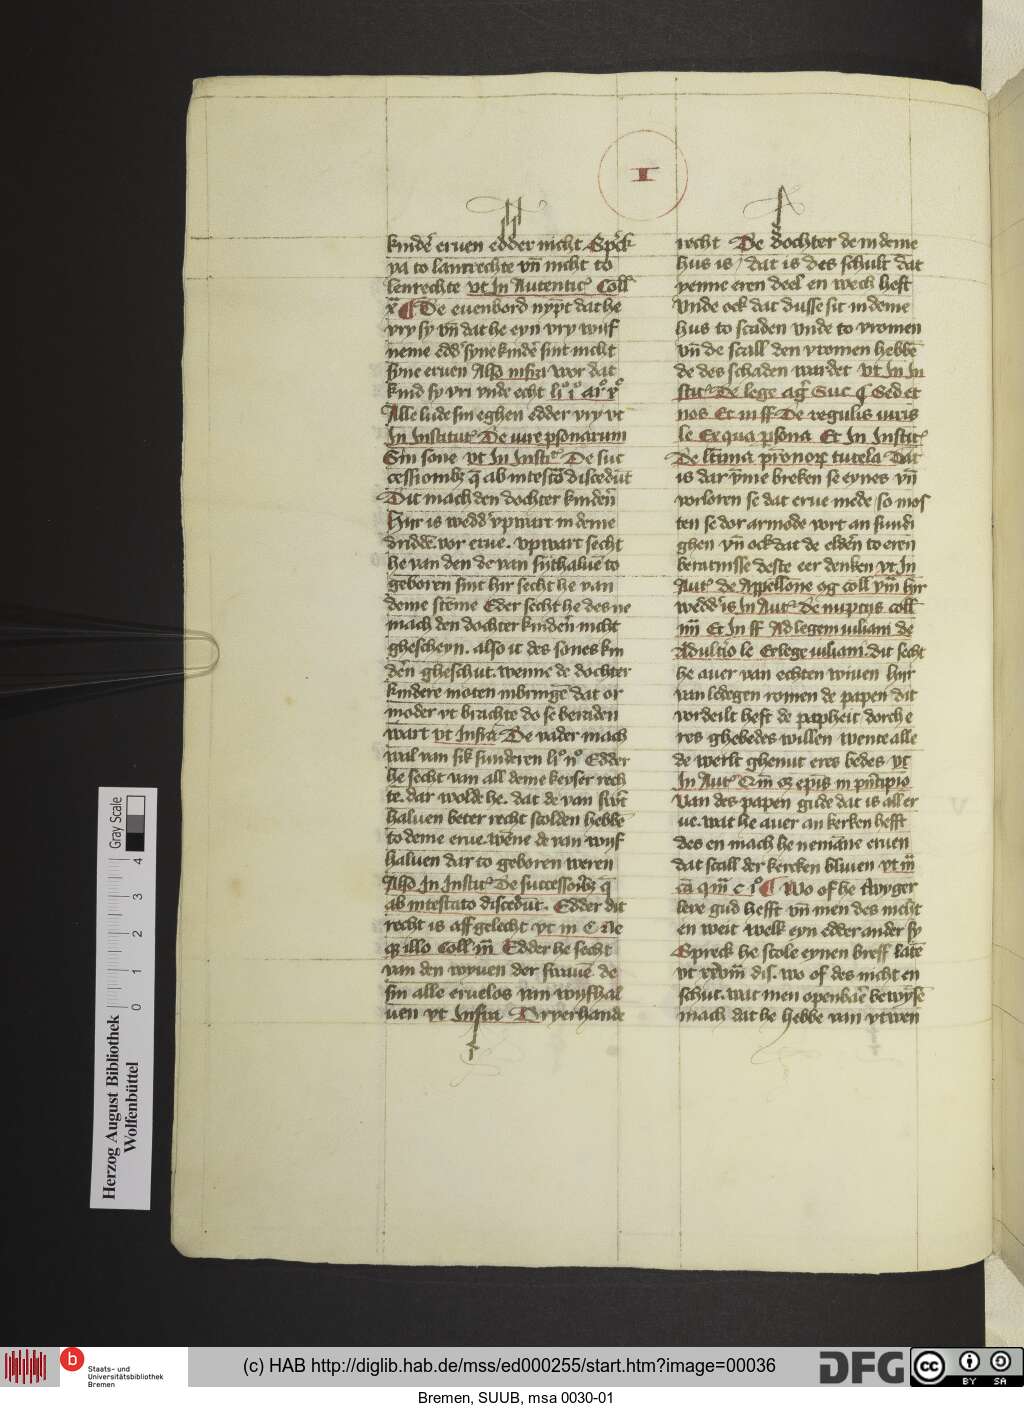 I
kindē eruen edder nicht Sprick
va to lantrechte vn̄ nicht to
lenrechte vt In Autentic Coll
x̄ ¶ De euenbord nypt dat he
vry sy vn̄ dat he eyn vry wijf
neme edd syne kindē sint nicht
syne eruen Also infra wor dat
kind sy vri vnde echt li° i° ar° v°
Alle lude sin eghen edder vry vt
In Institut De iure psonarum
Sin sone vt In Insti De suc
cessionibꝫ q̄ ab intestō discedūt
Dit mach den dochter kindeñ
Hijr is wedd vpwart in deme
dridde vor erue. vpwart secht
he van den de van suthalue to
geboren sint hir secht he van
deme stēme Eder secht he des ne
mach den dochter kindeñ nicht
ghescheyn. also it des sones kin
dēn gheschut. wenne de dochter
kindere moten inbringē dat or
moder vt brachte do se beraden
wart vt Infra De vader mach
wal van sik sunderen li° n° Edder
he secht van all deme keyser rech
te. dar wolde he. dat de van swt
haluen beter recht scolden hebbē
to deme erue. wēne de van wijf
haluen dar to geboren weren
Also In Insti De successoibꝫ q̄
ab intestato discedūt. Edder dit
recht is aff gelecht vt in C Ne
qꝫ illo Coll m̄ Edder he secht
van den wyuen der swaue de
sin alle eruelos van wijfhal
uen vt Infra Dryerhande
recht De dochter de in deme
hus is / dat is des schult dat
yenne eren deel en wech heft
Vnde ock dat dusse sit in deme
hus to scaden vnde to vromen
vn̄ de scall den vromen hebbē
de des schaden wardet vt In In
stit De lege agr̄ Suc ¶ Sed et
nos Et in ff De regulis iuris
le Ex qua psona Et In Instit
De ltīma pr̄onoꝝ tutela Dat
is dar ȳme breken se eynes vn̄
vorloren se dat erue mede / so mos
ten se dor armode wrt an sundi
ghen vn̄ ock dat de eldern to eren
beratnisse deste eer denken vt In
Aut de Appellone og coll vm̄ hijr
wedd is In Aut De nuptijs coll
iiii Et In ff Ad legem iuliam de
Adultio le Ex lege iuliam. dit secht
he auer van echten wiuen hijr
van ledegen romen de papen dit
vordeilt heft de papheit dorch e
res ghebedes willen wente alle
de werlt ghenut eres bedes vt
In Aut Qm̄ oꝫ epīs in pn̄cipio
Van des papen gude dat is all er
ue. wat he auer an kerken hefft
des en mach he nemāne eruen
dat scall der kercken bliuen vt iii
cā q m̄ c i° ¶ Wo of he swyger
leye gud hefft vn̄ men des nicht
en weit welk eyn edder ander sy
Spreck he scole eynen breff latē
vt xxviii dis. wo of des nicht en
schut. wat men openbaē bewysē
mach dat he hebbe van ytwen
Gray Scale
0 1 2 3 4
Herzog August Bibliothek
Wolfenbüttel
b
Staats- und
Universitätsbibliothek
Bremen
(c) HAB http://diglib.hab.de/mss/ed000255/start.htm?image=00036
DFG
cc BY SA
Bremen, SUUB, msa 0030-01